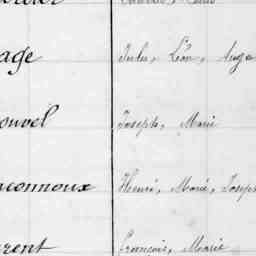 age Jules, Léon, Auge
ouvel Joseph, Marie
aconnoux Henri, Marie, Joseph
urent François, Marie